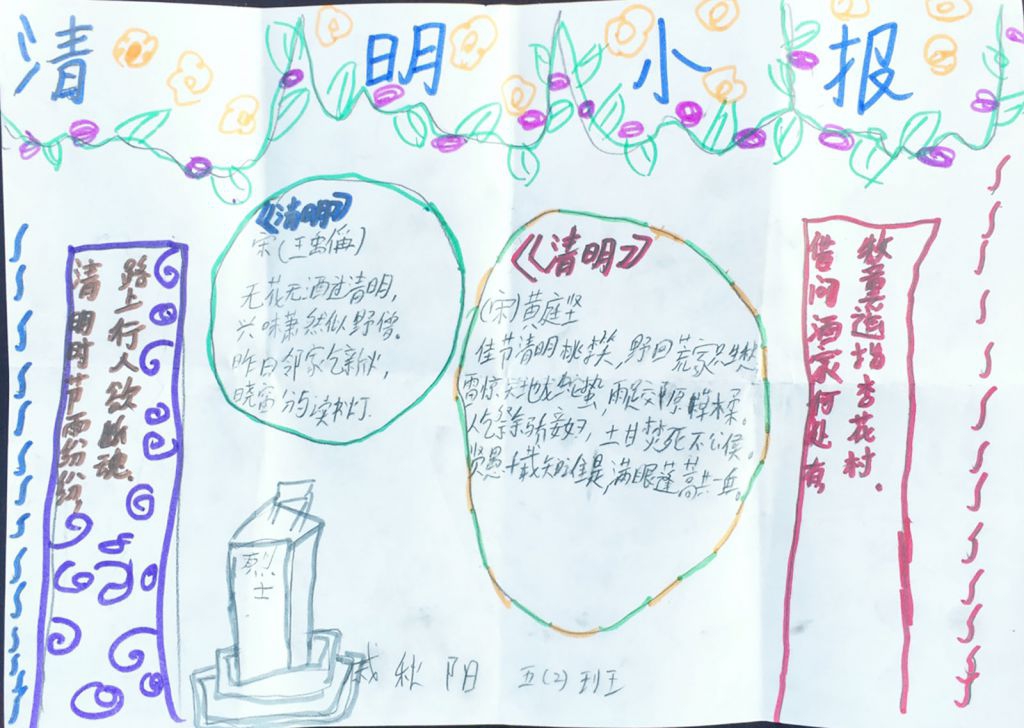 清明小报
清明时节雨纷纷,
路上行人欲断魂.
《清明》
宋(王禹偁)
无花无酒过清明,
兴味萧然似野僧.
昨日邻家乞新火,
晓窗分与读书灯.
《清明》
(宋)黄庭坚
佳节清明桃笑,野田荒冢只愁
雷惊天地龙蛇蛰,雨足郊原草木柔。
人乞祭余骄妾妇,士甘焚死不公侯。
贤愚千载知谁是,满眼蓬蒿共一丘。
借问酒家何处有,
牧童遥指杏花村.
烈
士
秋阳 五(2)班